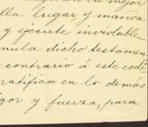 la mejor
lla lugar y manda
y ejecute inviolable
mula dicho testamen
contrario á este codi
ratifica en lo demás
gor y fuerza, para